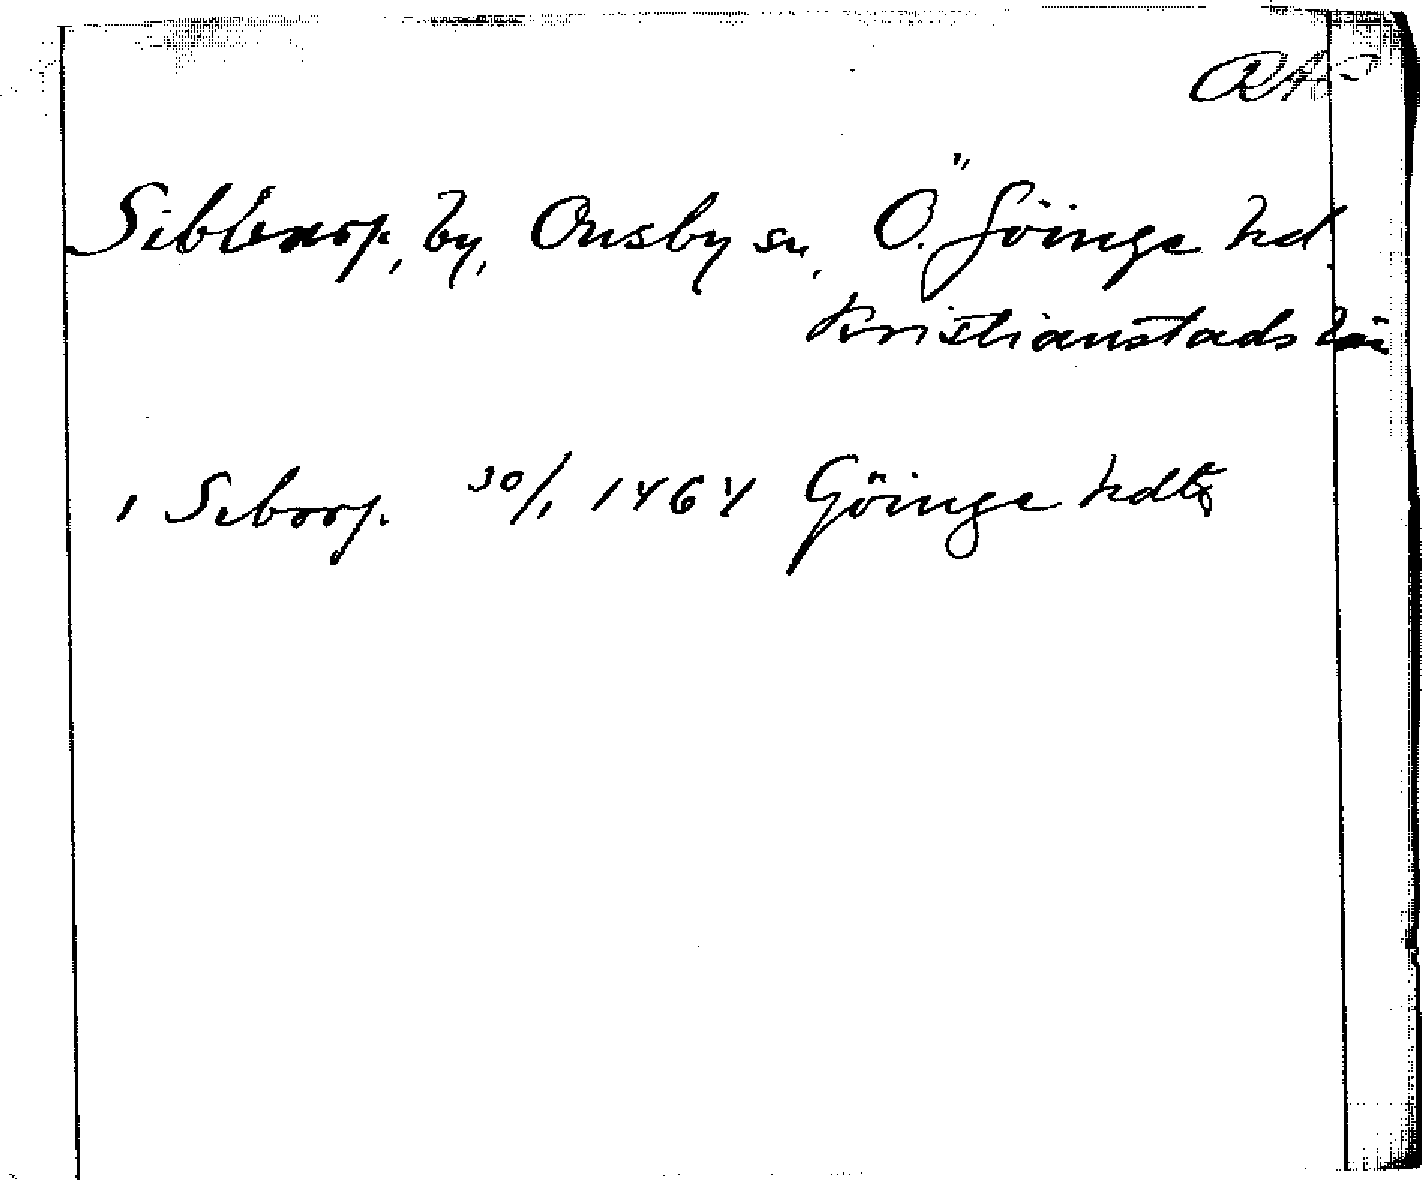 RAP
Sibberorp, by, Ousby sn, Ö. Göinge hd.
Kristianstads län
1 Seborp. 30/1 1464 Göinge hdtg